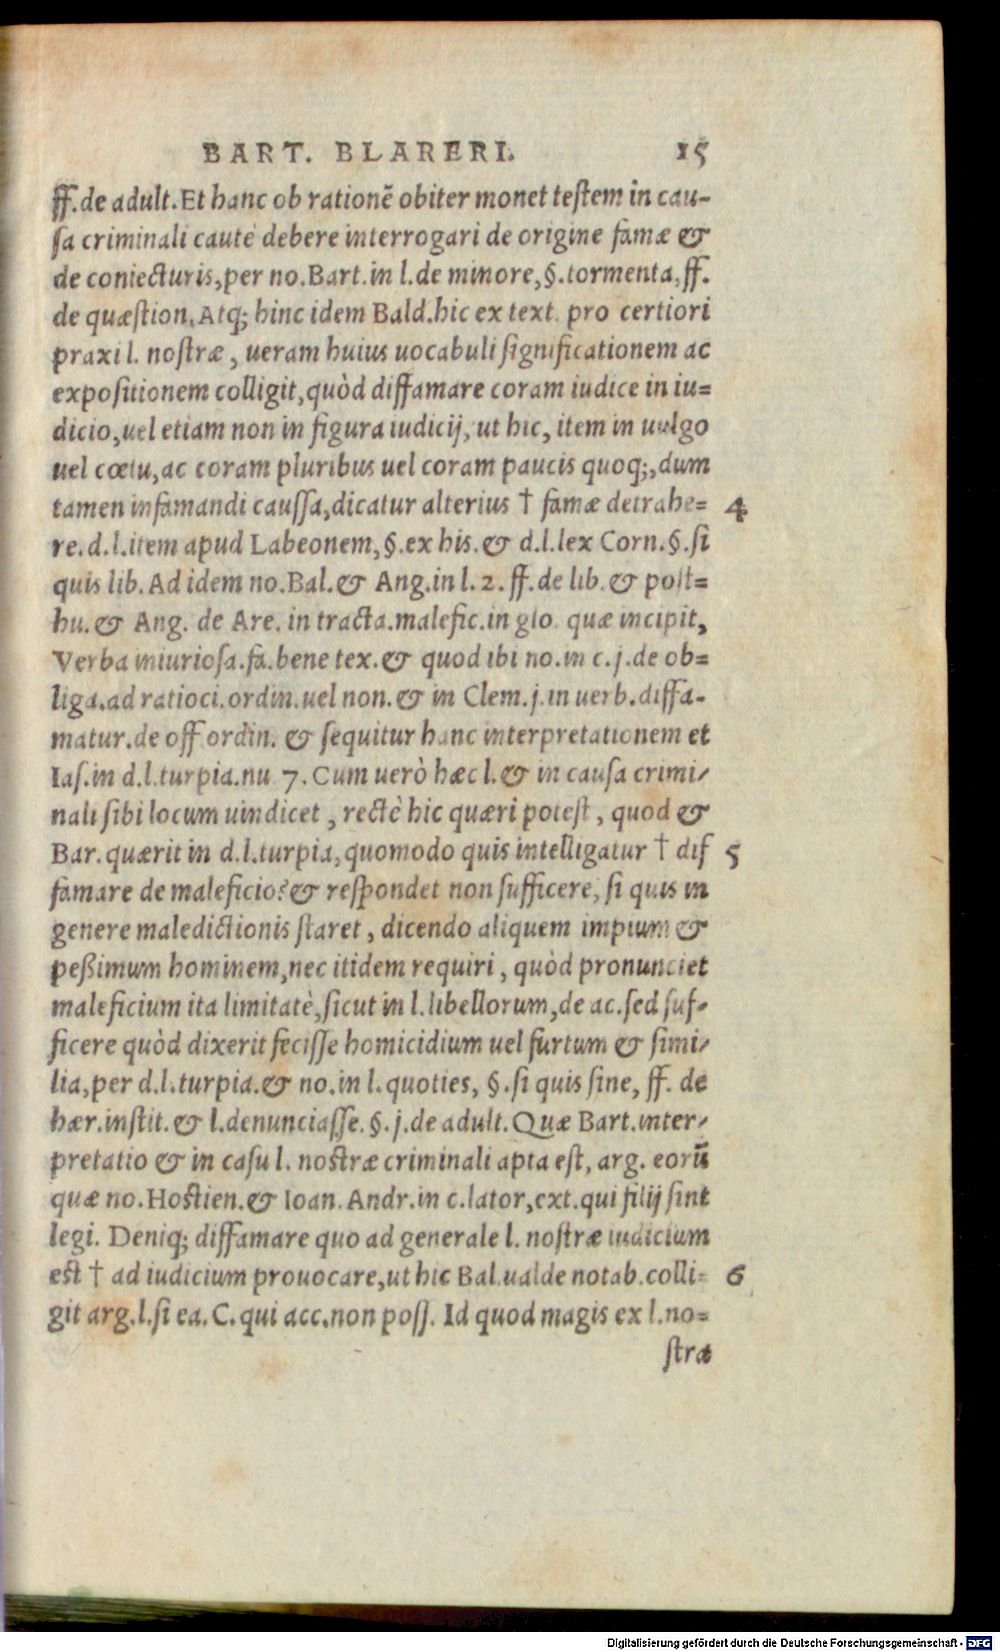 BART. BLARERI. 15
ff. de adult. Et hanc ob rationẽ obiter monet testem in cau-
sa criminali cautè debere interrogari de origine famæ &
de coniecturis, per no. Bart. in l. de minore, §. tormenta, ff.
de quæstion. Atq; hinc idem Bald. hic ex text. pro certiori
praxi l. nostræ, ueram huius uocabuli significationem ac
expositionem colligit, quòd diffamare coram iudice in iu=
dicio, uel etiam non in figura iudicij, ut hic, item in uulgo
uel cœtu, ac coram pluribus uel coram paucis quoq;, dum
tamen infamandi caussa, dicatur alterius † famæ detrahe= 4
re. d. l. item apud Labeonem, §. ex his. & d. l. lex Corn. §. si
quis lib. Ad idem no. Bal. & Ang. in l. 2. ff. de lib. & post=
hu. & Ang. de Are. in tracta. malefic. in glo. quæ incipit,
Verba iniuriosa. fa. bene tex. & quod ibi no. in c. j. de ob=
liga. ad ratioci. ordin. uel non. & in Clem. j. in uerb. diffa-
matur. de off ordin. & sequitur hanc interpretationem et
Ias. in d. l. turpia. nu 7. Cum uerò hæc l. & in causa crimi-
nali sibi locum uindicet, rectè hic quæri potest, quod &
Bar. quærit in d. l. turpia, quomodo quis intelligatur † dif 5
famare de maleficio? & respondet non sufficere, si quis in
genere maledictionis staret, dicendo aliquem impium &
peßimum hominem, nec itidem requiri, quòd pronunciet
maleficium ita limitatè, sicut in l. libellorum, de ac. sed suf-
ficere quòd dixerit fecisse homicidium uel furtum & simi-
lia, per d. l. turpia. & no. in l. quoties, §. si quis sine, ff. de
hær. instit. & l. denunciasse. §. j. de adult. Quæ Bart. inter-
pretatio & in casu l. nostræ criminali apta est, arg. eorũ
quæ no. Hostien. & Ioan. Andr. in c. lator, ext. qui filij sint
legi. Deniq; diffamare quo ad generale l. nostræ iudicium
est † ad iudicium prouocare, ut hic Bal. ualde notab. colli= 6
git arg. l. si ea. C. qui acc. non poss. Id quod magis ex l. no=
stræ
Digitalisierung gefördert durch die Deutsche Forschungsgemeinschaft - DFG